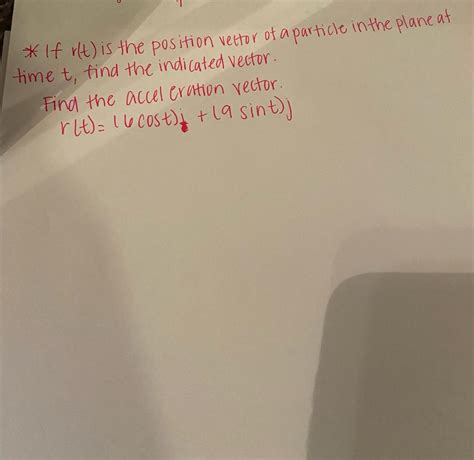 * If r(t) is the position vector of a particle in the plane at
time t, find the indicated vector.
Find the acceleration vector.
r(t) = (6 cost)i + (9 sint)j